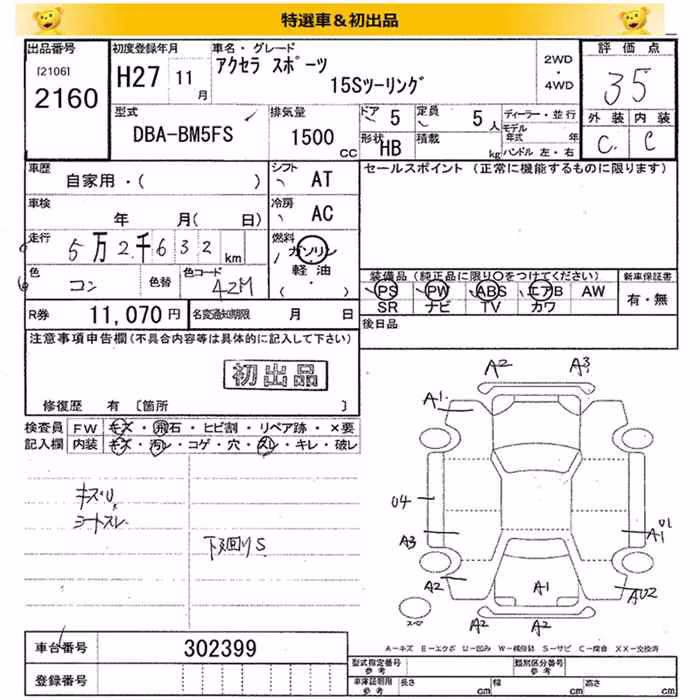 特選車＆初出品
出品番号
[2106]
2160
初度登録年月
H27 11月
車名・グレード
アクセラ スポーツ
15Sツーリング
2WD
・
4WD
評価点
35
外装 内装
C C
型式
DBA-BM5FS
排気量
1500
CC
ドア 5
定員 5人
形状 HB
積載 kg
ディーラー・並行
モデル年式 年
ハンドル 左・右
車歴
自家用・( )
シフト
AT
車検
年 月( 日)
冷房
AC
走行
5万2千632km
燃料
ガソリン
軽油
(・)
色
コン
色替
色コード
42M
R券
11,070円
名変通知期限 月 日
セールスポイント (正常に機能するものに限ります)
装備品 (純正品に限り○をつけてください)
新車保証書
PS PW ABS エアB AW
有・無
SR ナビ TV カワ
後日品
注意事項申告欄(不具合内容等は具体的に記入して下さい)
初出品
修復歴 有 〔箇所 〕
検査員 FW キズ・飛石・ヒビ割・リペア跡・×要
記入欄 内装 キズ・汚レ・コゲ・穴・スレ・キレ・破レ
キズU
シートスレ
下廻りS
A2 A3
A1
U4
A3
U1
A1
A2
A1
AU2
A2 A2
スペア
A－キズ E－エクボ U－凹み W－補修跡 S－サビ C－腐食 XX－交換済
車台番号
302399
登録番号
型式指定番号
参考
類別区分番号
参考
車庫証明用
参考
長さ cm
幅 cm
高さ cm